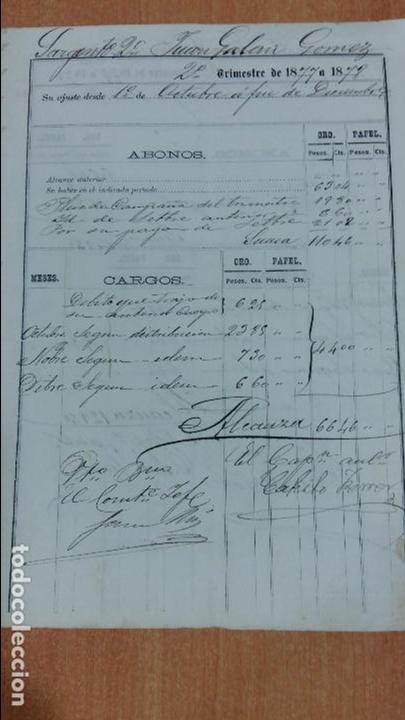 Sargento 2º Juan Galan Gomez
2º Trimestre de 1877 a 1879
Su ajuste desde 1º de Octubre á fin de Diciembre
ORO. PAPEL.
ABONOS. Pesos. Cts. Pesos. Cts.
Alcance anterior
Su haber en el indicado periodo 63 04 " "
Plus de Campaña del trimestre 19 30 " "
Id de Stbre anterior 3 60 " "
Por su paga de Stbre
Suma 110 46 " "
ORO. PAPEL.
MESES. CARGOS. Pesos. Cts. Pesos. Cts.
Debito que trajo de su anterior Cuerpo 6 25 " "
Octubre Segun distribucion
Nobre Segun idem 7 30 " "
44 00 " "
Dbre Segun idem 6 60 " "
Alcanza 66 46 " "
El Capn
El Comte Jefe
todocoleccion